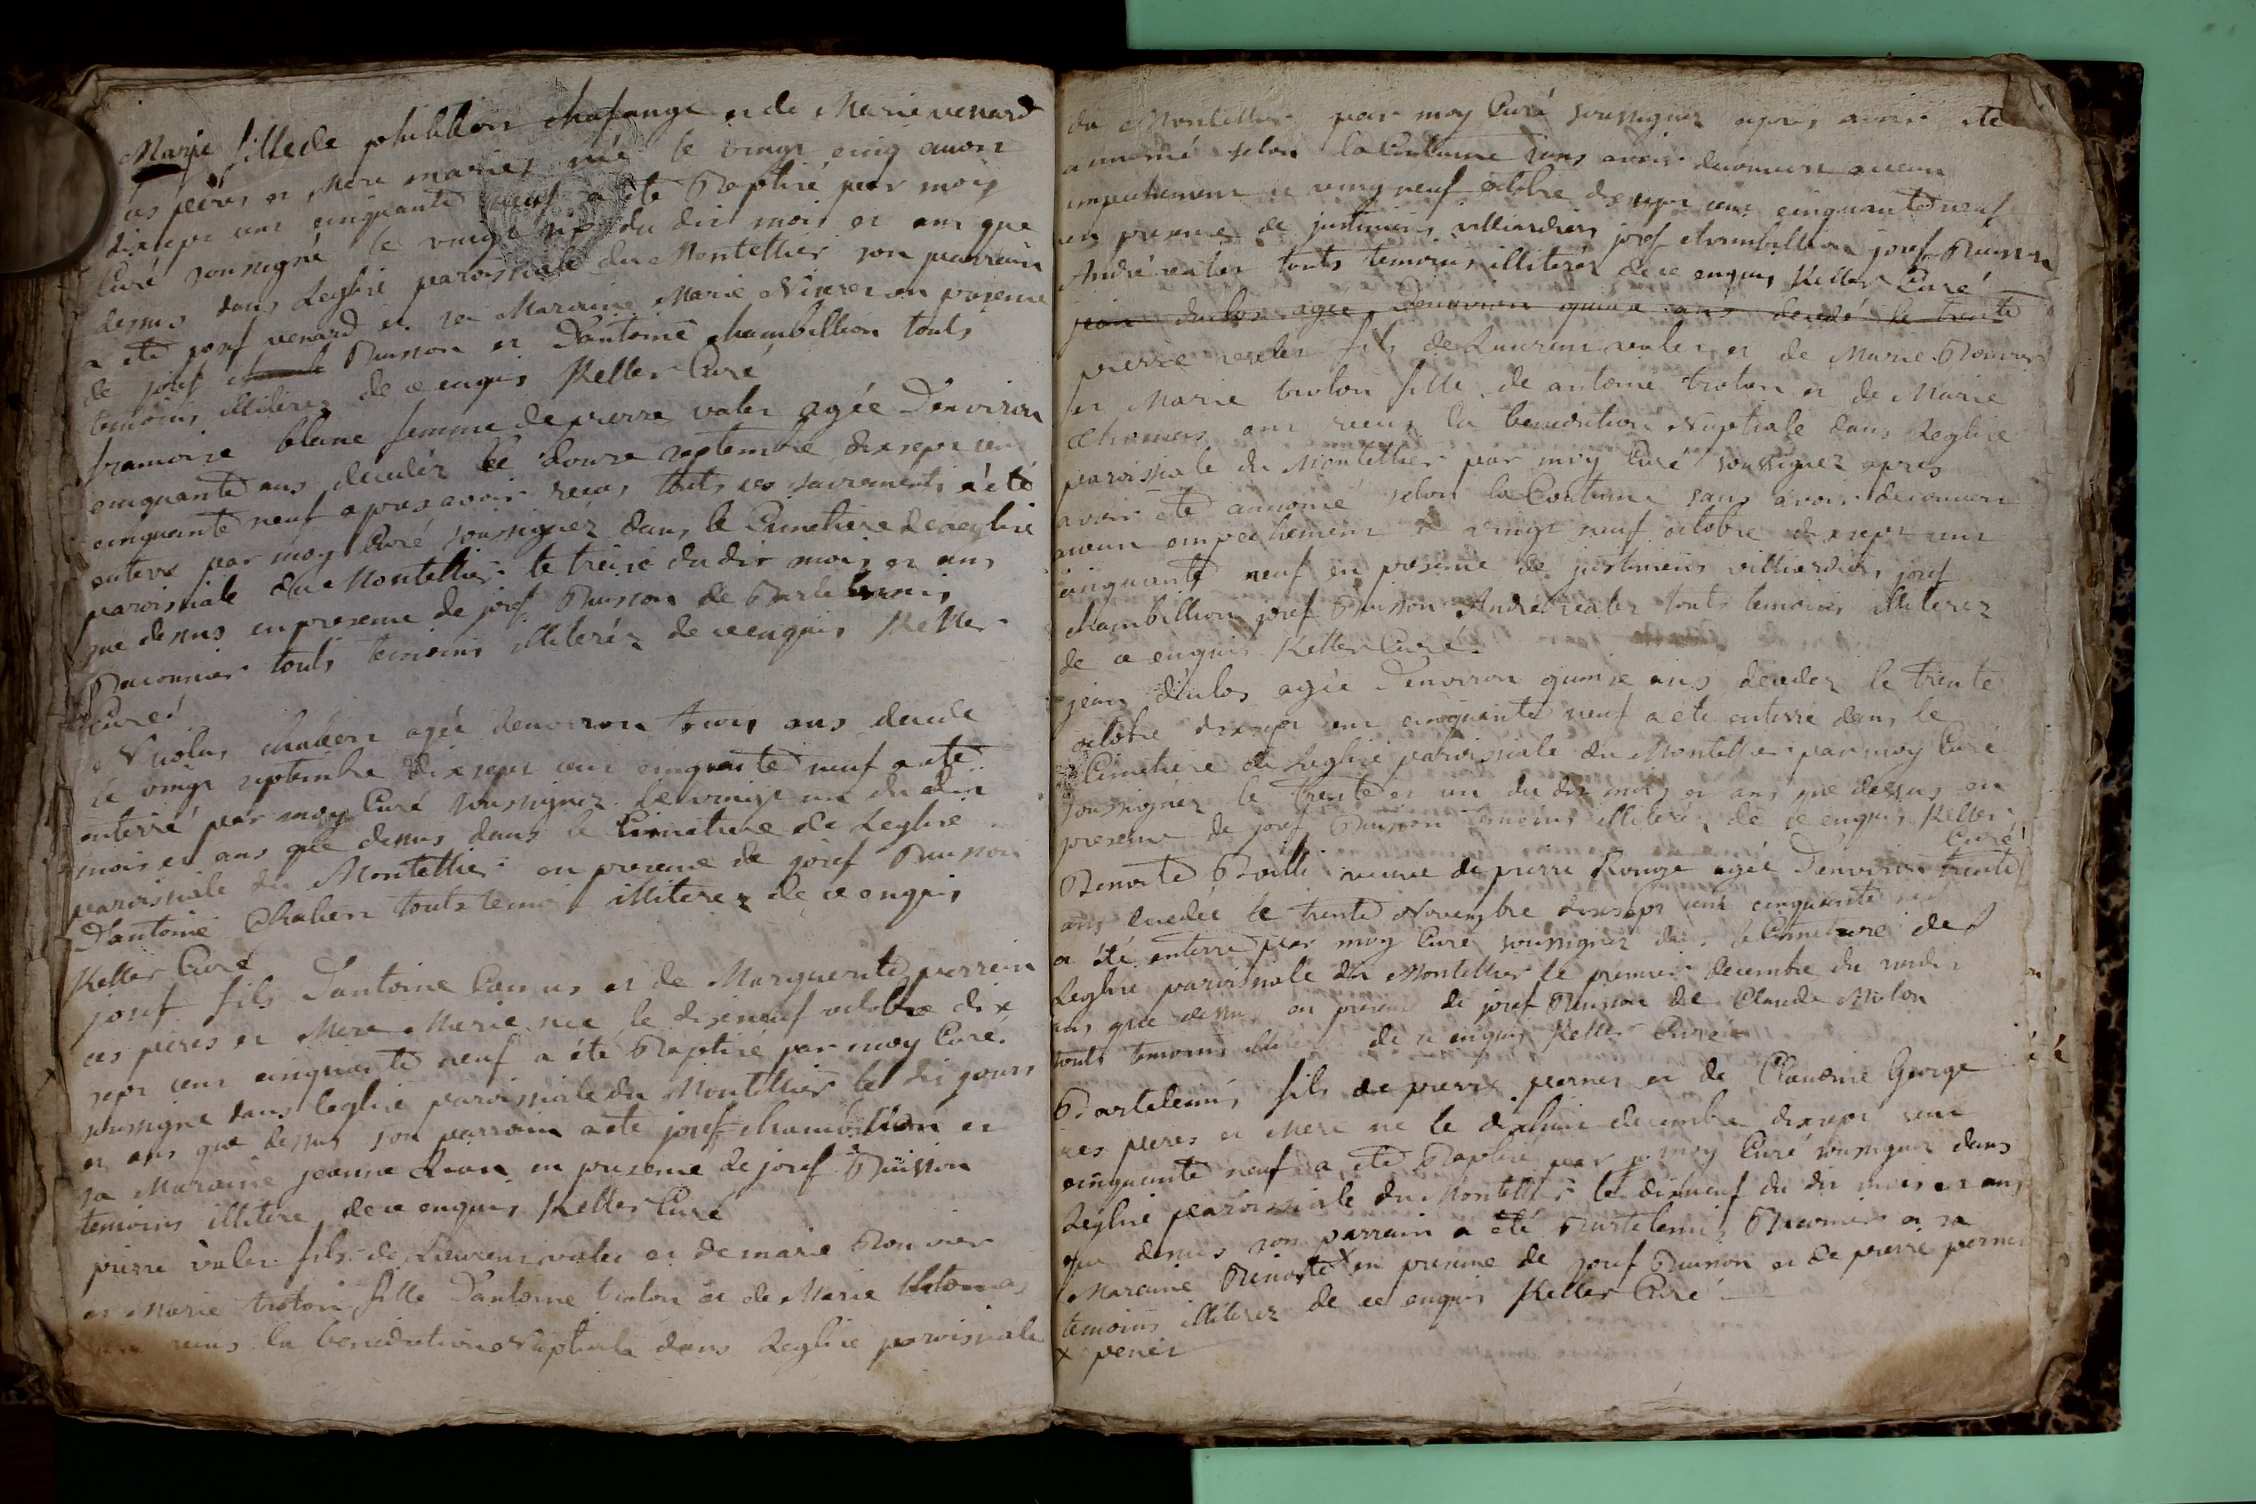 Marie fille de philibbon chafange et de Marie venard
ces peres et Mere mariez née le vingt cinq auoit
dixsept cent cinquante neuf a été Baptisé par moy
Curé sousigné le vingt six du dit mois et ans que
dessus dans Leglise paroissiale du Montellier son parrain
a été josef venard et sa Maraine Marie en presence
de josef Buisson et D'antoine chambillion touts
temoins illiterez de ce enquis Keller Curé
francoise blanc femme de pierre valer agée Denviron
cinquante ans decedéz le douze septembre dixsept cent
cinquante neuf apres avoir recus touts ces sacrements a été
enterré par moy Curé sousignéz dans le Cimetiere de leglise
paroissiale du Montellier le treise du dit mois et ans
que dessus en presence de josef Buisson de Bartelemis
Baconnier touts temoins illiteréz de ce enquis Keller
Curé
Nicolas chaken agée denviron trois ans decede
le vingt septembre dixsept cent cinquante neuf a été
enterré par moy Curé sousignez le vingt un du dit
mois et ans que dessus dans le Cimetiere de Leglise
paroissiale du Montellier en presence de josef Buisson
D'antoine Chaken touts temoi illiterez de ce enquis
Keller Curé
josef fils D'antoine Camus et de Marguerite perrein
ces peres et Mere Marie nee le dixneuf octobre dix
sept cent cinquante neuf a été Baptisé par moy Curé
sousigne dans leglise paroissiale du Montellier le dis jours
et ans que dessus son parrain a été josef chambillion et
sa Maraine jeanne Luan en presence de josef Buisson
temoins illitere de ce enquis Keller Curé
pierre valer fils de Laurent valer et de marie Bouvier
et Marie troton fille D'antoine troton et de Marie thomas
recus la benediction Nuptiale dans Leglise paroissiale
du Montellier par moy Curé sousignez apres avoir été
annomé selon la Coutume sans avoir decouvert aucun
empechement le vingt neuf octobre dixsept cent cinquante neuf
en presence de justinien villiardier josef chambillion josef Buisson
André reater touts temoins illiterez de ce enquis Keller Curé
jean duclos agée Denviron quinze ans decedé le trente
pierre valer fils de Laurent valer et de Marie Bouvier
et Marie troton fille de antoine troton et de Marie
thomas ont recus la benediction Nuptiale dans Leglise
paroissiale du Montellier par moy Curé sousignez apres
avoir été annomé selon la Coutume sans avoir decouvert
aucun empechement le vingt neuf octobre dixsept cent
cinquante neuf en presence de justinien villiardier josef
chambillion josef Buisson André reater touts temoins illiterez
de ce enquis Keller Curé
jean duclos agée Denviron quinze ans decedez le trente
octobre dixsept cent cinquante neuf a été enterré dans le
Cimetiere de Leglise paroissiale du Montellier par moy Curé
soussignéz le trente et un du dit mois et ans que dessus en
presence de josef Buisson temoins illiteréz de ce enquis Keller
Curé
Benoite Bailli veuve de pierre Rouge agée Denviron trente
ans decedée le trente Novembre dixsept cent cinquante
a été enterré par moy Curé sousignez dans le Cimetiere de
Leglise paroissiale du Montellier le premier decembre du
ans que dessus en presence de josef Buisson de Claude Milon
touts temoins de ce enquis Keller Curé
Bartelemis fils de pierre x perner et de Claudine George
ces peres et Mere né le dixhuit decembre dixsept cent
cinquante neuf a été Baptisé par moy Curé sousignez dans
Leglise paroissiale du Montellier le dixneuf du dit mois et ans
que dessus son parrain a été Bartelemis Baconnier et sa
Maraine Benoite x en presence de josef Buisson et de pierre perner
temoins illiterez de ce enquis Keller Curé
x penet